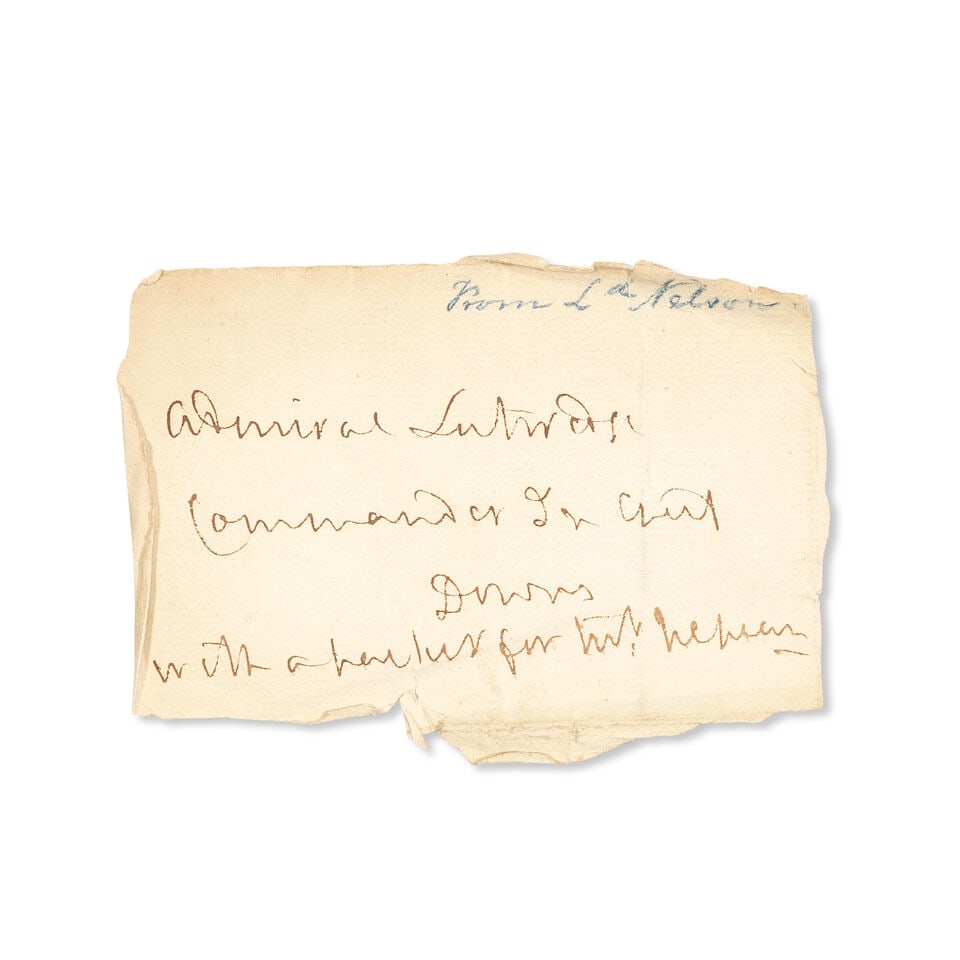 From Ld Nelson
Admiral Lutwidge
Commander In Chief
Downs
with a packet for Mr. Nepean